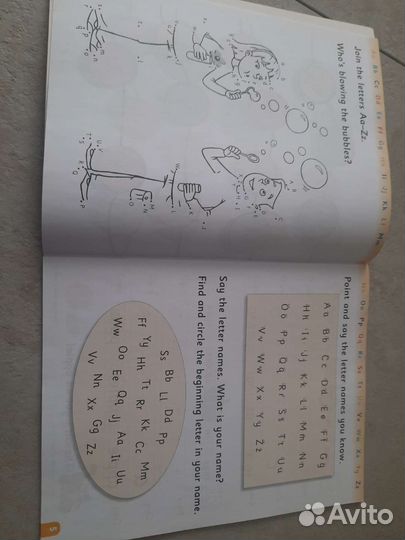 Bb Cc Dd Ee Ff Gg Hh Ii Jj Kk Ll Mm
Join the letters Aa-Zz.
Who's blowing the bubbles?
Nn Oo Pp Qq Rr Ss Tt Uu Vv Ww Xx Yy Zz
Point and say the letter names you know.
Aa Bb Cc Dd Ee Ff Gg
Hh Ii Jj Kk Ll Mm Nn
Oo Pp Qq Rr Ss Tt Uu
Vv Ww Xx Yy Zz
Say the letter names. What is your name?
Find and circle the beginning letter in your name.
Ss Bb Ll Dd Pp
Ff Yy Hh Tt Rr Kk Cc Mm
Ww Oo Ee Qq Jj Aa Ii Uu
Vv Nn Xx Gg Zz
5
Avito